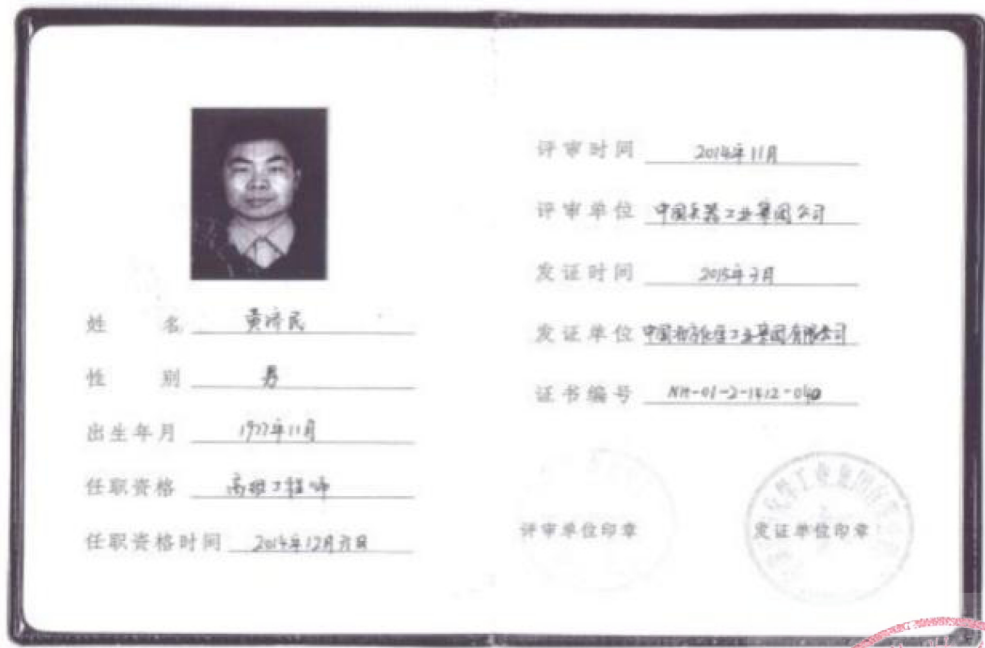 姓 名 黄济民
性 别 男
出生年月 1977年11月
任职资格 高级工程师
任职资格时间 2014年12月
评审时间 2014年11月
评审单位 中国兵器工业集团公司
发证时间 2015年3月
发证单位 中国北方化学工业集团有限公司
证书编号 NH-01-2-1412-040
评审单位印章
发证单位印章